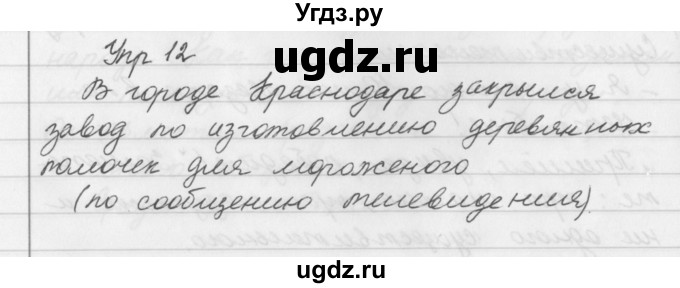 Угдз.ру
ugdz.ru
Упр 12
В городе Краснодаре закрылся
завод по изготовлению деревянных
палочек для мороженого
(по сообщению телевидения).
ugdz.ru